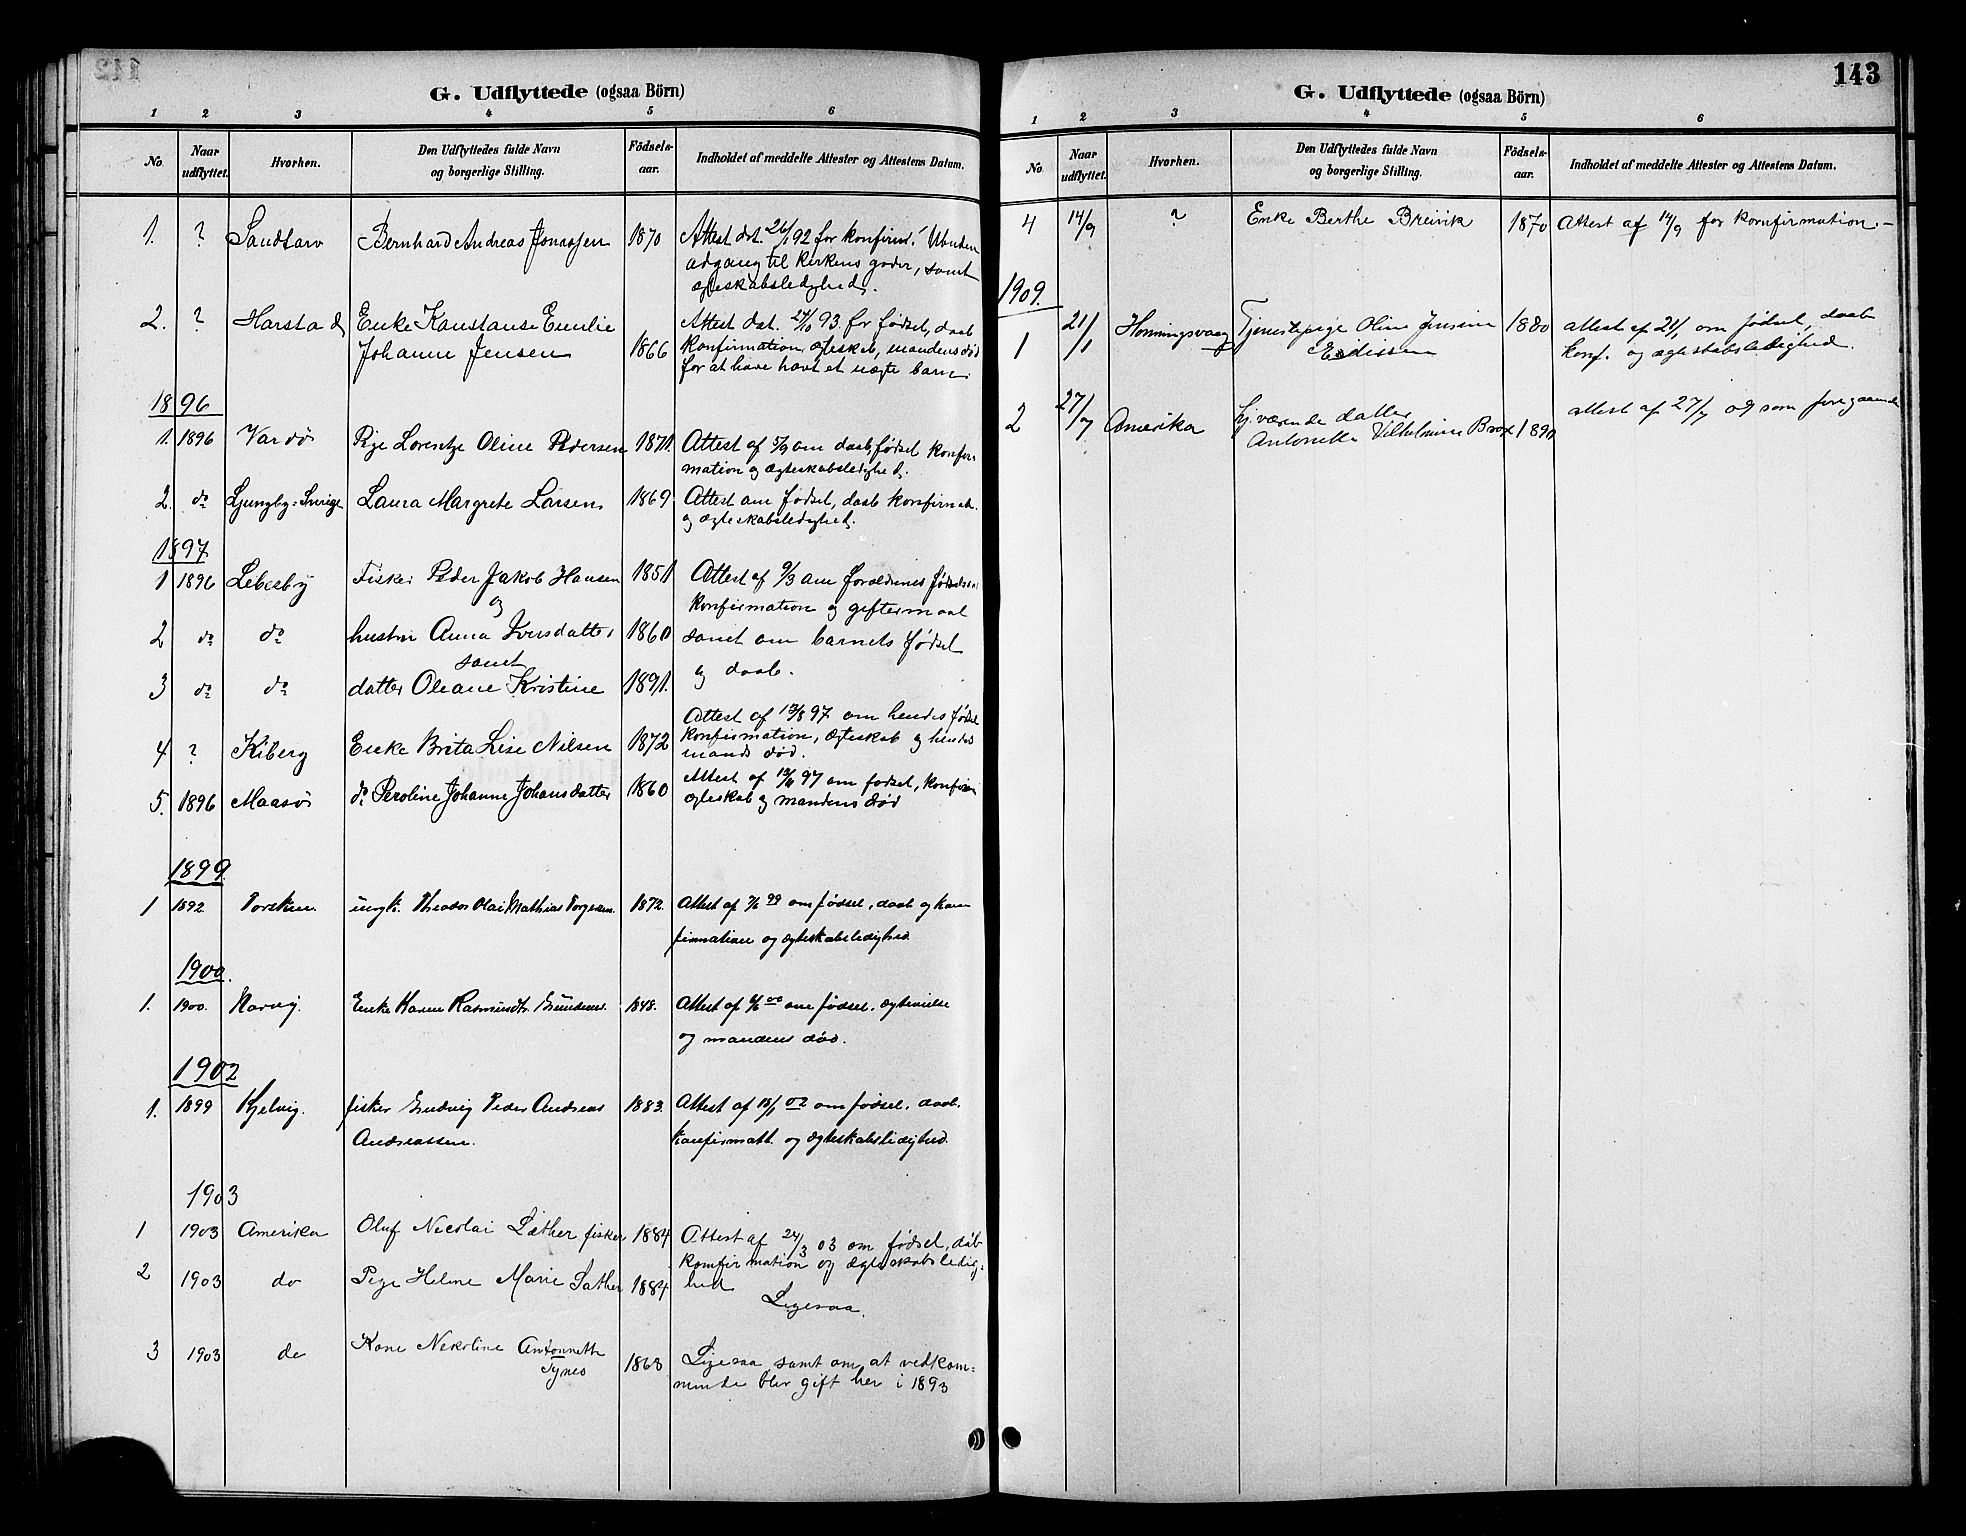 G. Udflyttede (ogsaa Börn)
1 2 3 4 5 6
No. Naar udflyttet. Hvorhen. Den Udflyttedes fulde Navn og borgerlige Stilling. Födsels-aar. Indholdet af meddelte Attester og Attestens Datum.
1. ? Sandtorv Bernhard Andreas Jonassen 1870 Attest dat. 26/1 92 for konfirm. Ubunden
adgang til kirkens goder, samt
egteskabsledighed.
2. ? Harstad Enke Konstanse Emilie Attest dat. 24/10 93 for fødsel, daab
Johanne Jensen 1866 konfirmation, egteskab, mandens død
for at have havt et uegte barn.
1896
1. 1896 Vardø Pige Lorentze Oline Pedersen 1871. Attest af 5/9 om daab, fødsel konfir-
mation og ægteskabsledighed.
2. do Ljungby: Sverige Laura Margrete Larsen 1869 Attest om fødsel, daab konfirmat.
og ægteskabsledighed.
1897
1 1896 Lebesby Fisker Peder Jakob Hansen 1851 Attest af 9/3 om forældrenes fødsel
og konfirmation og giftermaal
2 do do hustru Anna Iversdatter 1860 samt om barnets fødsel
samt
3 do do datter Oleane Kristine 1891. og daab.
4 ? Kiberg Enke Brita Lise Nilsen 1872 Attest af 12/8 97 om hendes fødsel
konfirmation, ægteskab og hendes
mands død.
5. 1896 Maasø do Peroline Johanne Johansdatter 1860 Attest af 97 om fødsel, konfirm
egteskab og mandens død
1899
1 1892 Torsken. ungk. Theodor Olai Mathias Torgersen. 1872. Attest af 7/6 99 om fødsel, daab og kon
firmation og ægteskabsledighed
1900.
1. 1900. Narvig. Enke Karen Rasmusdtr. 1848. Attest af 6/6 00 om fødsel, egtevielse
og mandens død.
1902
1. 1899 Kjelvig. fisker Ludvig Peder Andreas 1883. Attest af 13/1 02 om fødsel, daab.
Andreassen. konfirmatt. og ægteskabsledighed.
1903
1 1903 Amerika Oluf Nicolai Sæther fisker 1884 Attest af 24/3 03 om fødsel, dåb
konfirmation og ægteskabsledig-
2 1903 do Pige Helene Marie Sæther 1884 hed
Ligesaa.
3 1903 do Kone Nekoline Antonnette
Tynes 1863 Ligesaa samt om at vedkom-
mende blev gift her i 1893
143
G. Udflyttede (ogsaa Börn)
1 2 3 4 5 6
No. Naar udflyttet. Hvorhen. Den Udflyttedes fulde Navn og borgerlige Stilling. Födsels-aar. Indholdet af meddelte Attester og Attestens Datum.
4 14/9 ? Enke Berthe Breivik 1870 Attest af 14/9 for konfirmation.-
1909.
1 21/1 Honningsvaag Tjenestepige Oline Jensine 1880 attest af 21/1 om fødsel, daab
Edissen konf. og ægteskabsledighed.
2 27/7 Amerika hj.værende datter attest af 27/7 og som foregaaende
Antonette Vilhelmine Brox 1890